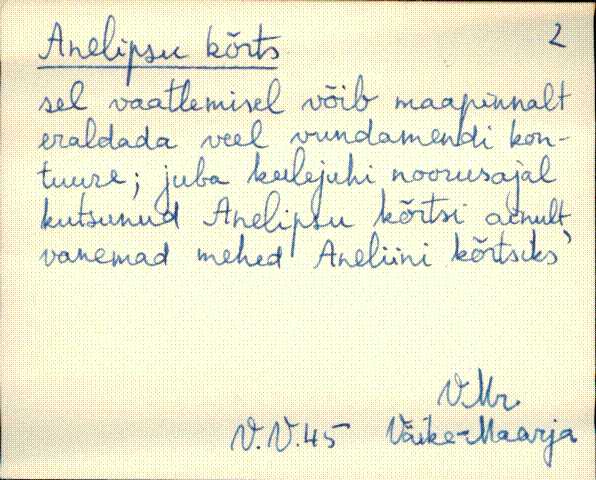 Anelipsu kõrts 2
sel vaatlemisel võib maapinnalt
eraldada veel vundamendi kon-
tuure; juba keelejuhi noorusajal
kutsunud Anelipsu kõrtsi ainult
vanemad mehed 'Aneliini kõrtsiks'
V.Mr.
V.V.45 Väike-Maarja